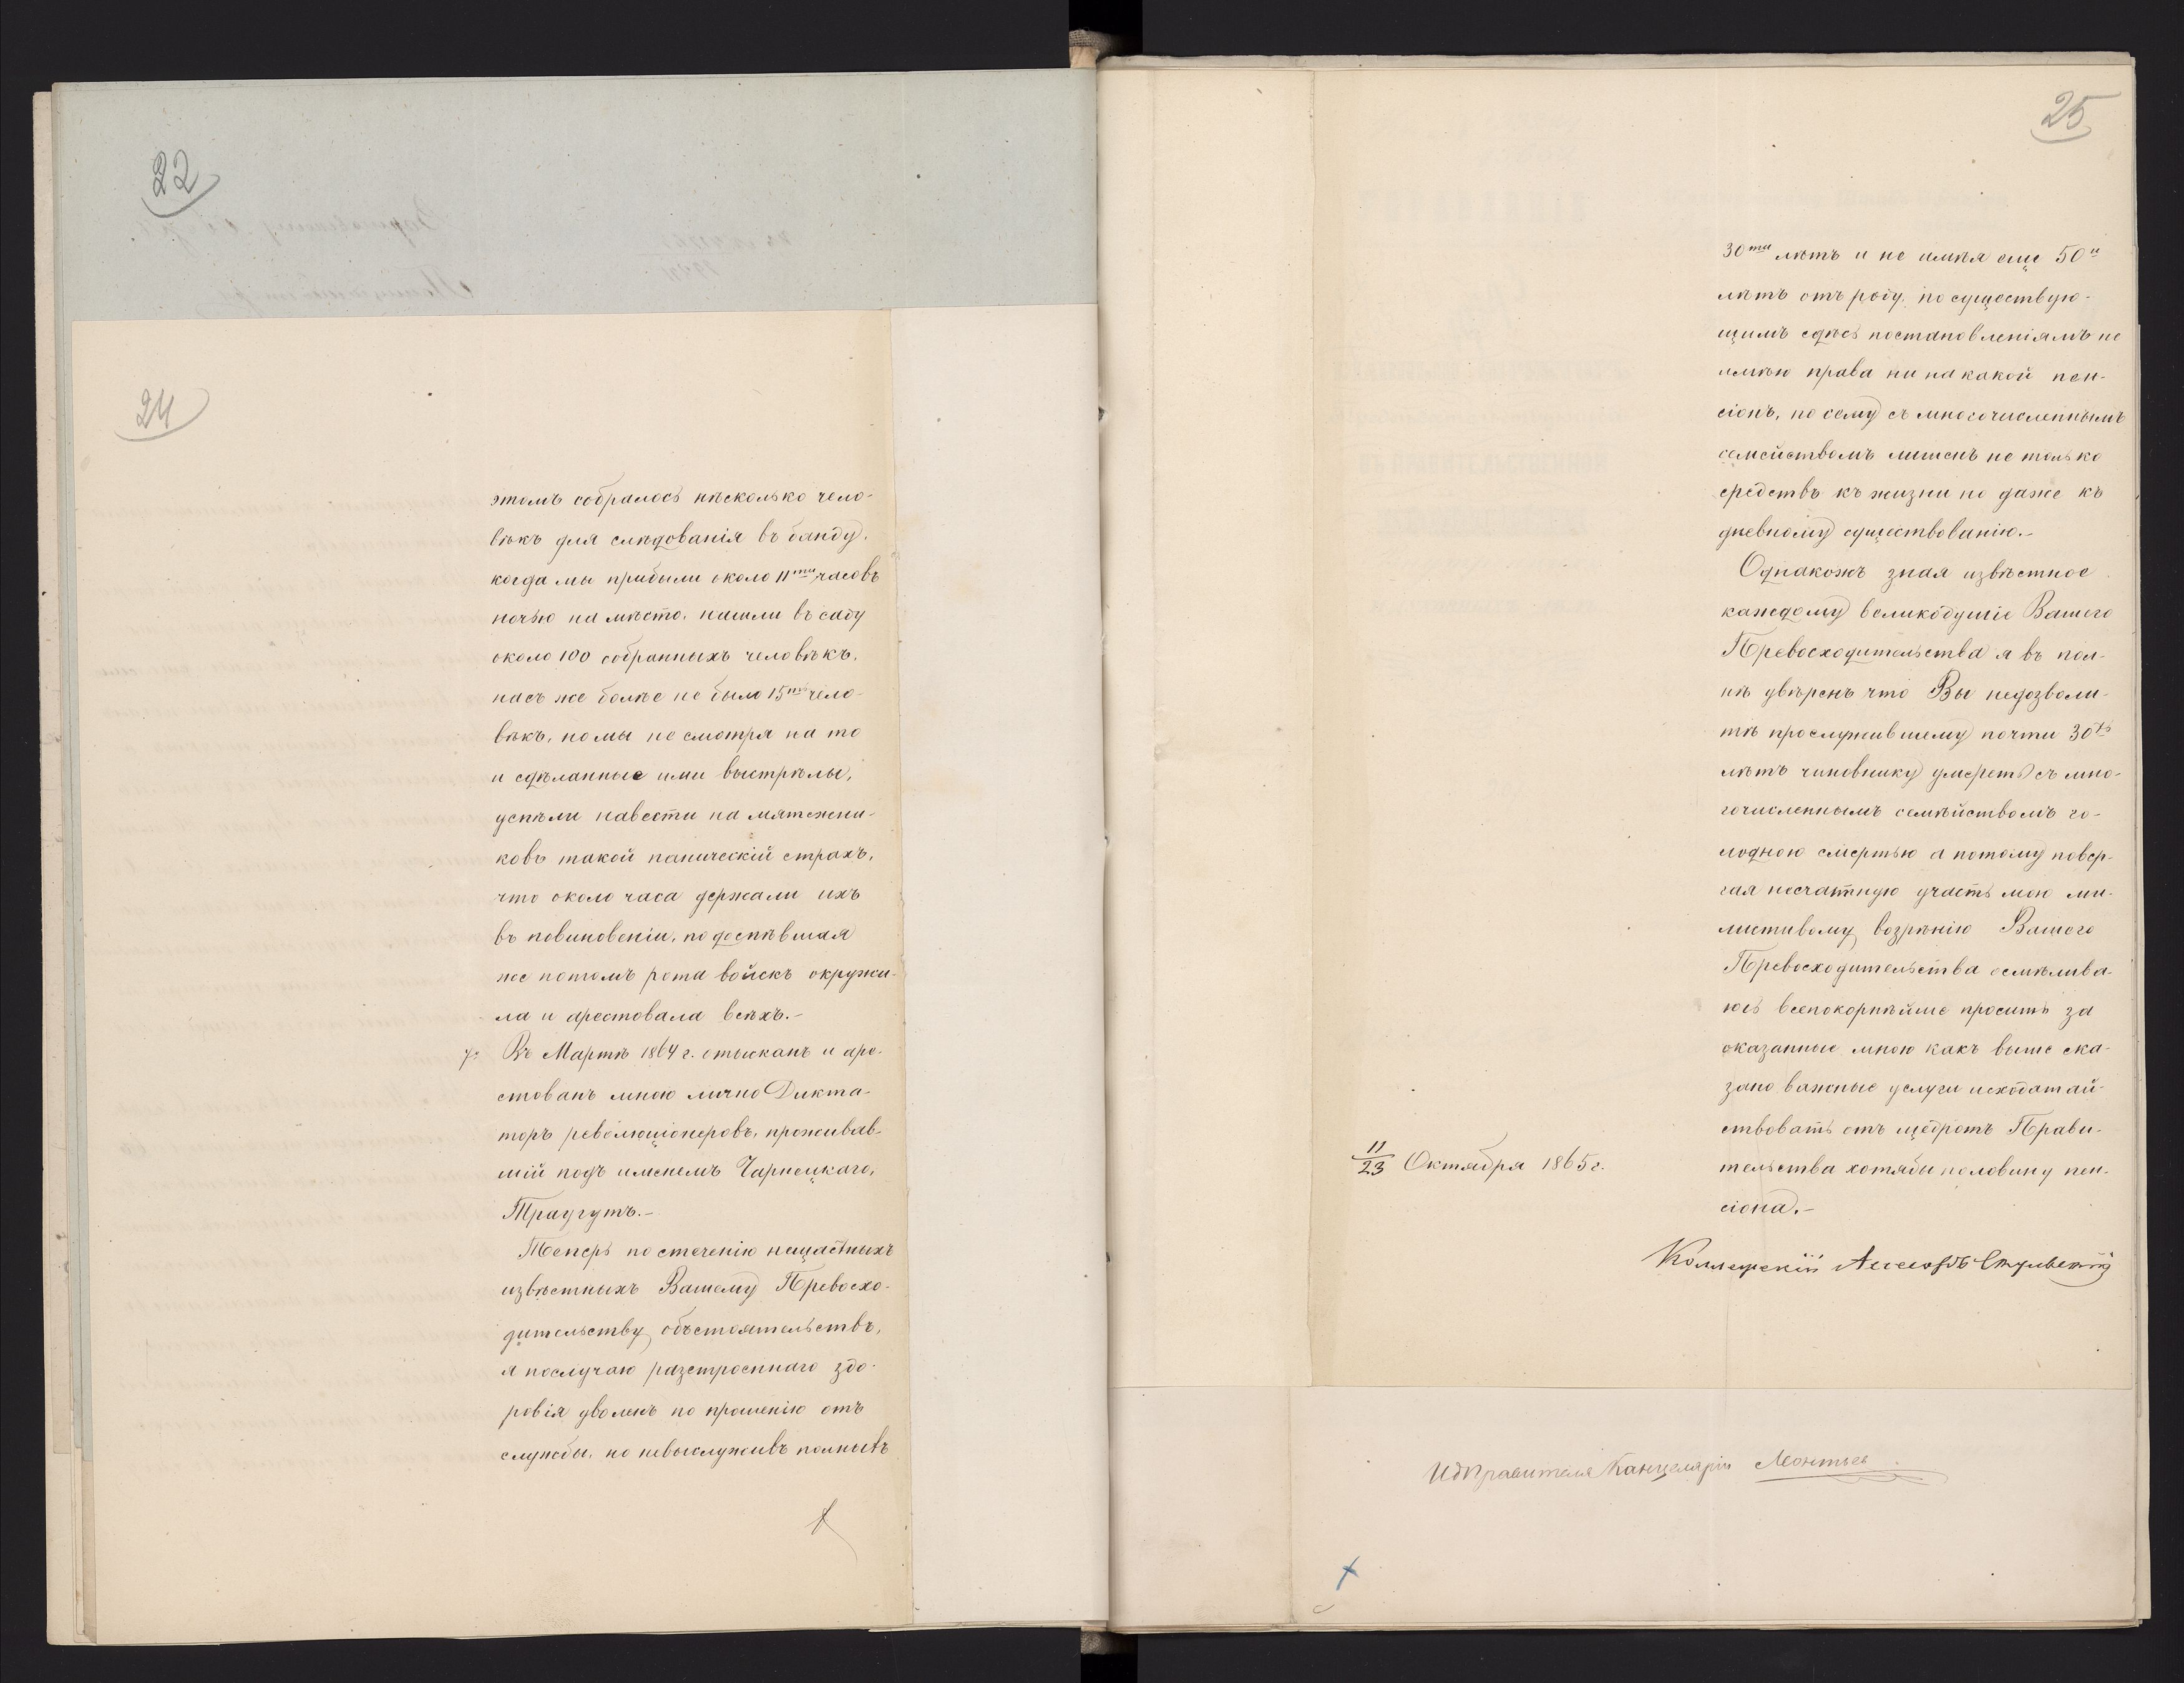 22
24
этомъ собралось нѣсколько чело-
вѣкъ для слѣдованія въ банду.
когда мы прибыли около 11ти часовъ
ночью на мѣсто, нашли въ саду
около 100 собранныхъ человѣкъ,
насъ же болѣе не было 15ти чело-
вѣкъ, но мы не смотря на то
и сдѣланные ими выстрѣлы,
успѣли навести на мятежни-
ковъ такой паническій страхъ,
что около часа держали ихъ
въ повиновеніи, подоспѣвшая
же потомъ рота войскъ окружи-
ла и арестовала всѣхъ.-
Въ Мартѣ 1864 г. отысканъ и аре-
стованъ мною лично Дикта-
торъ революціонеровъ, проживав-
шій подъ именемъ Чарнецкаго,
Траугутъ.-
Теперь по стеченію нещастныхъ
извѣстныхъ Вашему Превосхо-
дительству, обстоятельствъ,
я послучаю разстроеннаго здо-
ровія уволенъ по прошенію отъ
службы, но невыслуживъ полныхъ
25
30ти лѣтъ и не имѣя еще 50и
лѣтъ отъ роду, по существую-
щимъ сдѣсь постановленіямъ не
имѣю права ни на какой пен-
сіонъ, по сему съ многочисленнымъ
семействомъ лишенъ не только
средствъ къ жизни но даже къ
дневному существованію.-
Однакожъ зная извѣстное
каждому великодушіе Вашего
Превосходительства я въ пол-
нѣ увѣренъ что Вы недозволи-
тѣ прослужившему почти 30ть
лѣтъ чиновнику умереть съ мно-
гочисленнымъ семѣйствомъ го-
лодною смертью а потому повер-
гая несчатную участь мою ми-
листивому возрѣнію Вашего
Превосходительства осмѣлива-
юсь всепокорнѣйше просить за
оказанные мною какъ выше ска-
зано важные услуги исходатай-
ствовать отъ щедротъ Прави-
тельства хотябы половину пен-
сіона.-
11/23 Октября 1865 г.
Коллежскій Ассесоръ
Правителя Канцеляріи Леонтьев